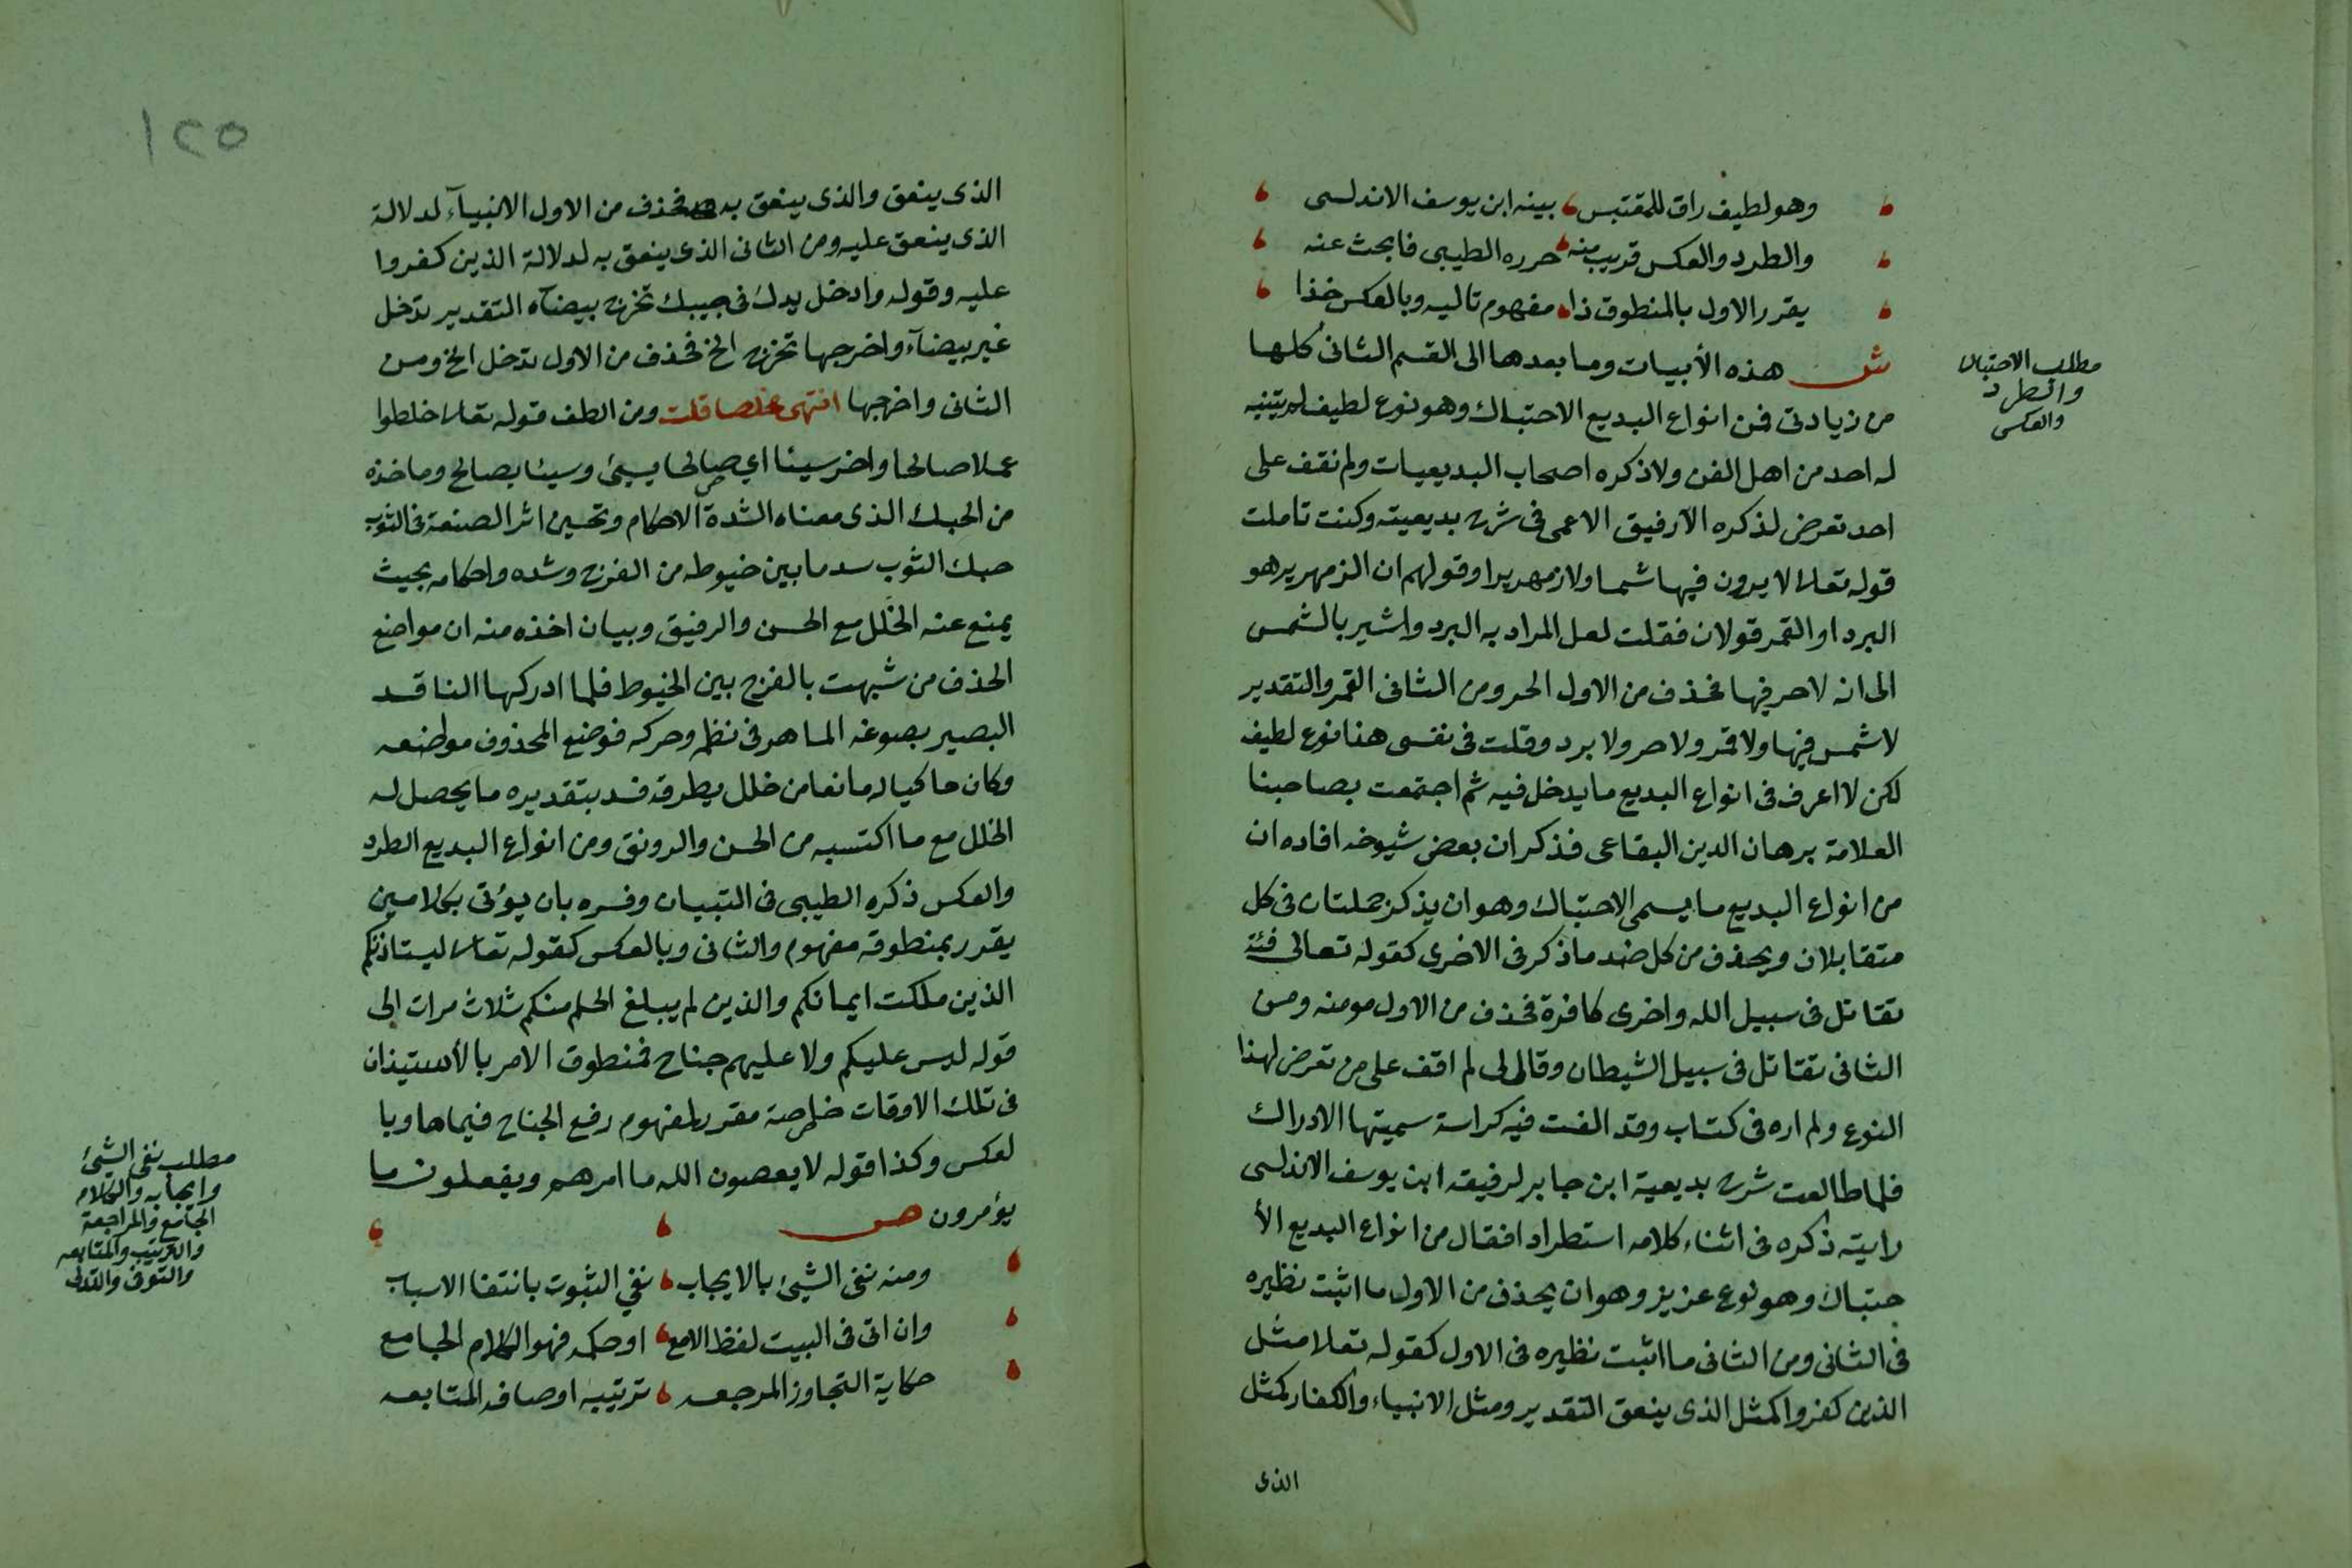 وهو لطيف راق للمقتبس ، بينه ابن يوسف الاندلسي
والطرد والعكس قريب منه ، حرره الطيبي فابحث عنه
يقرر الاول بالمنطوق ذا ، مفهوم تاليه وبالعكس خذا
ش هذه الأبيات وما بعدها الى القسم الثاني كلها
مطلب الاحتباك
والطرد
والعكس
من زيادتي فمن انواع البديع الاحتباك وهو نوع لطيف لم يتنبه
له احد من اهل الفن ولا ذكره اصحاب البديعيات ولم نقف على
احد تعرض لذكره الا رفيق الاعمى في شرح بديعيته وكنت تاملت
قوله تعالى لا يرون فيها شمسا ولا زمهريرا وقولهم ان الزمهرير هو
البرد او القمر قولان فقلت لعل المراد به البرد واشير بالشمس
الى انه لا حر فيها فحذف من الاول الحر ومن الثاني القمر والتقدير
لا شمس فيها ولا قمر ولا حر ولا برد وقلت في نفسي هذا نوع لطيف
لكن لا اعرف في انواع البديع ما يدخل فيه ثم اجتمعت بصاحبنا
العلامة برهان الدين البقاعي فذكر ان بعض شيوخه افاده ان
من انواع البديع ما يسمى الاحتباك وهو ان يذكر جملتان في كل
متقابلان ويحذف من كل ضد ما ذكر في الاخرى كقوله تعالى فئة
تقاتل في سبيل الله واخرى كافرة فحذف من الاول مومنه ومن
الثاني تقاتل في سبيل الشيطان وقال لي لم اقف على من تعرض لهذا
النوع ولم اره في كتاب وقد الفت فيه كراسة سميتها الادراك
فلما طالعت شرح بديعية ابن جابر لرفيقه ابن يوسف الاندلسي
رايته ذكره في اثناء كلامه استطرادا فقال من انواع البديع الأ
حتباك وهو نوع عزيز وهو ان يحذف من الاول ما اثبت نظيره
في الثاني ومن الثاني ما اثبت نظيره في الاول كقوله تعلا مثل
الذين كفروا كمثل الذي ينعق التقدير ومثل الانبياء والكفار كمثل
الذى
١٢٥
الذي ينعق والذي ينعق به فحذف من الاول الانبيآء لدلالة
الذي ينعق عليه ومن الثاني الذي ينعق به لدلالة الذين كفروا
عليه وقوله وادخل يدك في جيبك تخرج بيضآء التقدير تدخل
غير بيضآء واخرجها تخرج الخ فحذف من الاول تدخل الخ ومن
الثاني واخرجها انتهى ملخصا قلت ومن الطف قوله تعالى خلطوا
عملا صالحا واخر سيئا اي صالحا بسيئ وسيئا بصالح وماخذه
من الحبك الذي معناه الشدة الاحكام وتحسين اثر الصنعة في الثوب
حبك الثوب سد ما بين خيوطه من الفرج وشده واحكامه بحيث
يمنع عنه الخلل مع الحسن والرفيق وبيان اخذه منه ان مواضع
الحذف من شبهت بالفرج بين الخيوط فلما ادركها الناقد
البصير بصوغه الماهر في نظمه وحركه فوضع المحذوف مواضعه
وكان حاكيا له مانعا من خلل يطرقه فسد بتقديره ما يحصل له
الخلل مع ما اكتسبه من الحسن والرونق ومن انواع البديع الطرد
والعكس ذكره الطيبي في التبيان وفسره بان يؤتى بكلامين
يقرر بمنطوقه مفهوم والثاني وبالعكس كقوله تعالى ليستاذنكم
الذين ملكت ايمانكم والذين لم يبلغ الحلم منكم ثلاث مرات الى
قوله ليس عليكم ولا عليهم جناح فمنطوق الامر بالأستيذان
في تلك الاوقات خاصة مقرر لمفهوم رفع الجناح فيما ها وبا
لعكس وكذا قوله لا يعصون الله ما امرهم ويفعلون ما
يؤمرون ص
مطلب نفي الشئ
وايجابه والكلام
الجامع والمراجعة
والترتيب والمتابعه
والترقي والتدلي
ومنه نفي الشئ بالايجاب ، نفي الثبوت بانتفا الاسباب
وان اتى في البيت لفظ الامع ، او حكمه فهو الكلام الجامع
حكاية التجاوز المرجعه ، ترتيبه اوصافه المتابعه